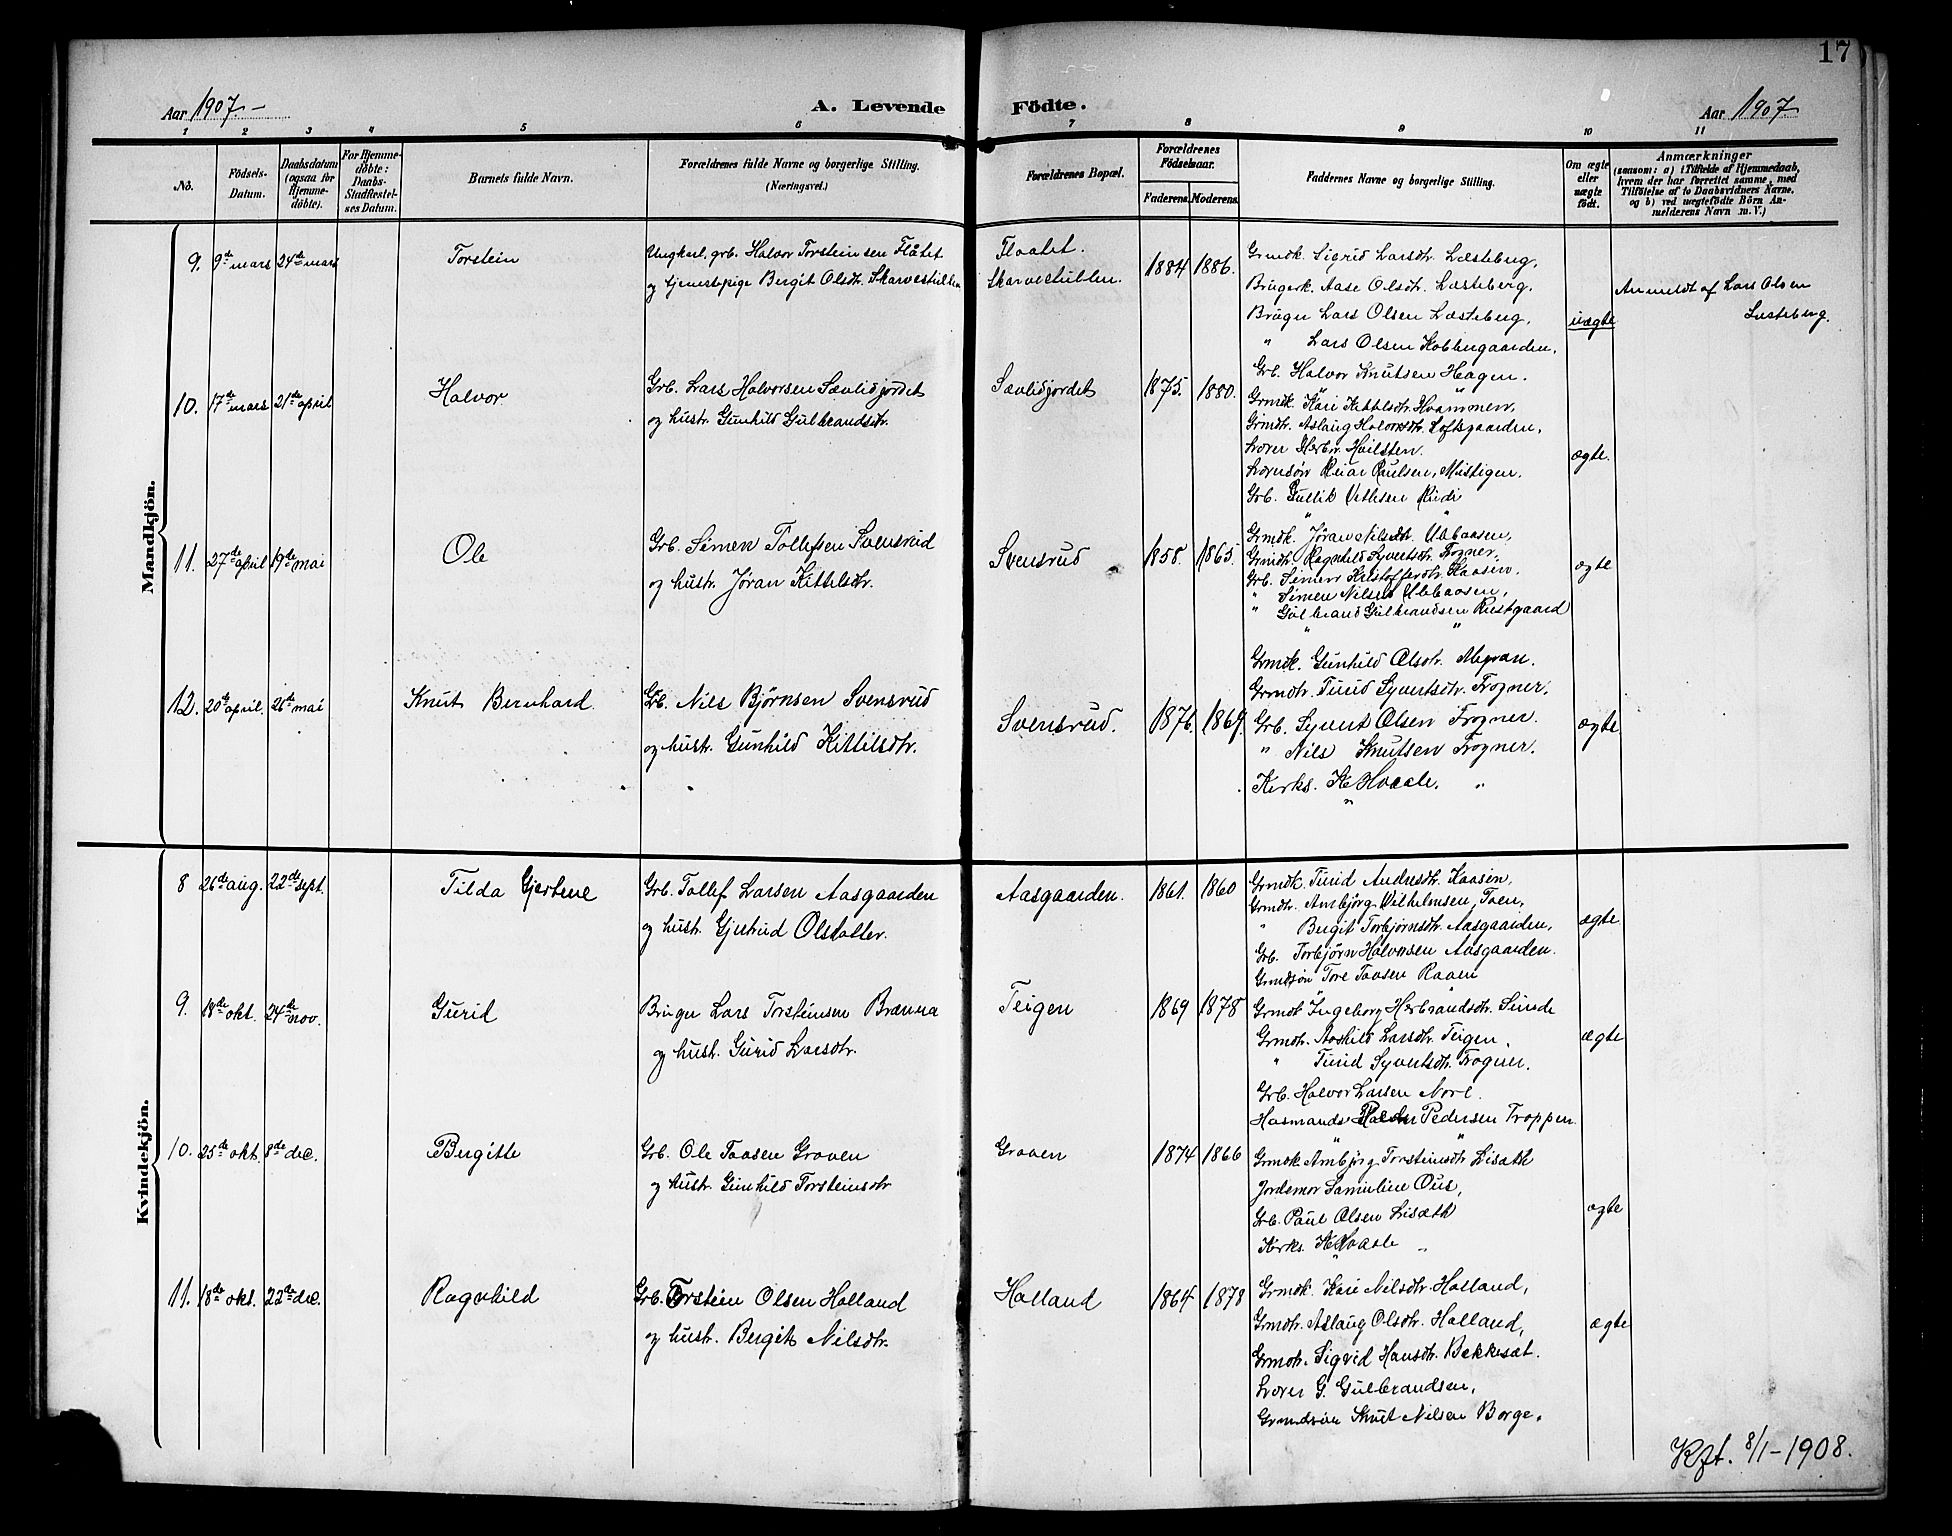 17
Aar 1907.–
A. Levende
Födte.
Aar 1907
1 2 3 4 5 6 7 8 9 10 11
No.
Födsels-
Datum.
Daabsdatum
(ogsaa for
Hjemme-
döbte).
For Hjemme-
döbte:
Daabs-
Stadfæstel-
ses Datum.
Barnets fulde Navn.
Forældrenes fulde Navne og borgerlige Stilling.
(Næringsvei.)
Forældrenes Bopæl.
Forældrenes
Födselsaar.
Faderens.
Moderens.
Faddernes Navne og borgerlige Stilling.
Om ægte
eller
uægte
födt.
Anmærkninger
(saasom: a) i Tilfælde af Hjemmedaab,
hvem der har forrettet samme, med
Tilföielse af to Daabsvidners Navne,
og b) ved uægtefödte Börn An-
melderens Navn m. V.)
Mandkjön.
9. 9de mars 24de mars
Torstein
Ungkarl, grb. Halvor Torsteinsen Flåtet
og tjenestepige Bergit Olsdtr. Skarvestubben
Flaatet.
Skarvestubben.
1884 1886.
Grmdk. Sigrid Larsdtr. Læsteberg,
Brugerk. Aase Olsdtr. Læsteberg,
Bruger Lars Olsen Læsteberg,
" Lars Olsen Kobbergaarden,
uægte
Anmeldt af Lars Olsen
Lesteberg.
10. 17de mars 21de april
Halvor
Grb. Lars Halvorsen Sævlidjordet
og hustr. Gunhild Gulbrandsdtr.
Sævlidjordet
1875. 1880.
Grb. Halvor Knutsen Hagen.
Grmdk. Kari Kittelsdtr. Hvammen,
Grmdtr. Aslaug Halvorsdtr. Loftsgaarden,
Lærer Herbr. Hvilsten.
Lærersøn Reiar Paulsen, Mustigen.
Grb. Gullik Rudi
ægte.
11. 27de april 19de mai
Ole
Grb. Simen Tollefsen Svensrud
og hustr. Jøran Kittelsdtr.
Svensrud
1858. 1865.
Grmdk. Jøran Nilsdtr. Ubbaasen,
Grmdtr. Ragnhild Syvertsdtr. Frogner,
Grb. Simen Kristofferdtr. Kaasin.
" Simen Nilsen Ubbaasen,
" Gulbrand Gulbrandsen Rustgaard
ægte
12. 20de april. 26de mai
Knut Bernhard.
Grb. Nils Bjørnsen Svensrud
og hustr. Gunhild Kittilsdtr.
Svensrud.
1876. 1869.
Grmdk. Gunhild Olsdtr. Megran.
Grmdtr. Turid Syvertsdtr. Frogner.
Grb. Syvert Olsen Frogner.
" Nils Knutsen Frogner.
Kirks. K Hvaale. "
ægte
Kvindekjön.
8 26de aug. 22de sept.
Tilda Gjertine
Grb. Tollef Larsen Aasgaarden
og hustr. Gjertrud Olsdatter.
Aasgaarden.
1861. 1860
Grmdk. Turid Andresdtr. Kaasin,
Grmdtr. Ambjørg Vilhelmsen, Toen,
" Bergit Torbjørnsdtr. Aasgaarden,
Grb. Torbjørn Halvorsen Aasgaarden.
Grmdsøn Tore Taasen Raaen
ægte
9. 18de okt. 24de nov.
Gurid
Bruger Lars Torsteinsen Brænna
og hust. Gurid Larsdtr.
Teigen
1869 1878
Grmdk Ingeborg Herbrandsdtr. Sunde
Grmdtr. Aashild Larsdtr. Teigen,
" Turid Syvertsdtr. Frogner.
Grb. Halvor Larsen Nørl.
Husmands Peder Pedersen Troppen.
ægte
10. 25de okt. 8de dec.
Bergitte
Grb. Ole Taasen Graven
og hustr. Gunhild Torsteinsdtr
Graven
1874 1866
Grmdk. Ambjørg Torsteinsdtr Lisæth
Jordemor Samuline Ous,
Grb. Paul Olsen Lisæth
Kirks. K Hvaale "
ægte
11. 18de okt. 22de dec.
Ragnhild
Grb. Torstein Olsen Holland
og hustr. Bergit Nilsdtr.
Holland
1864 1878
Grmdk. Kari Nilsdtr. Holland,
Grmdtr. Aslaug Olsdtr. Holland,
Grmdtr. Sigrid Hansdtr. Bekkesæt.
Lærer G. Gulbrandsen,
Grmdsøn Knut Nilsen Borge.
ægte
Kft. 8/1–1908.